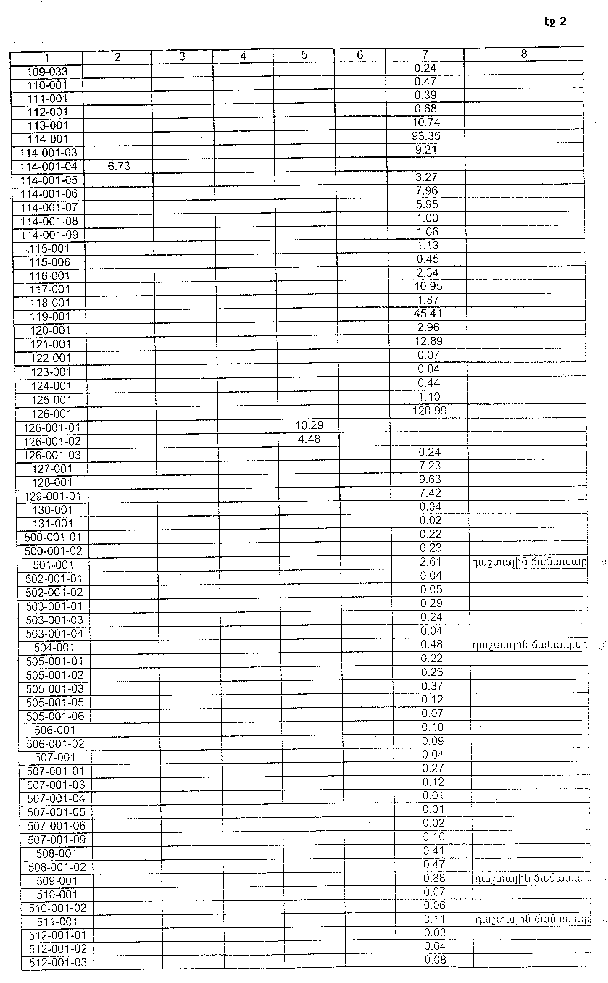 էջ 2
1 2 3 4 5 6 7 8
109-033 0.24
110-001 0.47
111-001 0.39
112-001 0.68
113-001 10.74
114-001
114-001-03 9.21
114-001-04 6.73
114-001-05 3.27
114-001-06 7.96
114-001-07 5.95
114-001-08 1.00
114-001-09 1.06
115-001 1.13
115-006 0.45
116-001
117-001 10.95
118-001
119-001 45.41
120-001 2.96
121-001 12.89
122-001 0.07
123-001 0.04
124-001 0.44
125-001 1.10
126-001
126-001-01 10.29
126-001-02 4.48
126-001-03 0.24
127-001 7.23
128-001 9.63
129-001-01 7.42
130-001 0.04
131-001 0.02
500-001-01 0.22
500-001-02
501-001 2.61
502-001-01 0.04
502-001-02 0.05
503-001-01 0.29
503-001-03 0.24
503-001-04 0.04
504-001 0.48
505-001-01 0.22
505-001-02
505-001-03 0.37
505-001-05 0.12
505-001-06 0.07
506-001 0.10
506-001-02 0.09
507-001 0.04
507-001-01 0.27
507-001-03 0.12
507-001-04 0.01
507-001-05 0.01
507-001-06 0.02
507-001-09
508-001 0.41
508-001-02 0.47
509-001
510-001 0.07
510-001-02 0.06
511-001 0.11
512-001-01 0.03
512-001-02 0.04
512-001-03 0.08